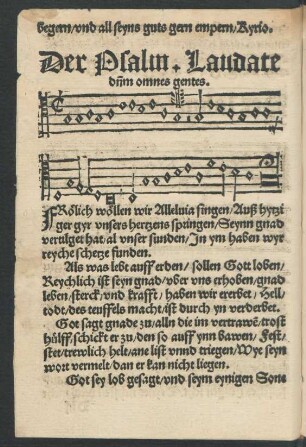 begern/vnd all seyns guts gern empern/Kyrio.
Der Psalm. Laudate
dn̄m omnes gentes.
FRölich wöllen wir Alleluia singen/Auß hytzi
ger gyr vnsers hertzens springen/Seynn gnad
vertilget hat al vnser sunden/In ym haben wyr
reyche schetze funden.
Als was lebt auff erden/ sollen Gott loben/
Reychlich ist seyn gnad/vber vns erhoben/gnad
leben/sterck/vnd krafft/haben wir ererbet/Hell/
todt/des teuffels macht/ist durch yn verderbet.
Got sagt gnade zu/alln die im vertrawē/trost
hülff/schickt er zu/den so auff ynn bawen/Fest/
ster/trewlich helt/ane list vnnd triegen/Wye seyn
wort vermelt/dan er kan nicht liegen.
Got sey lob gesagt/vnd seym eynigen Sone